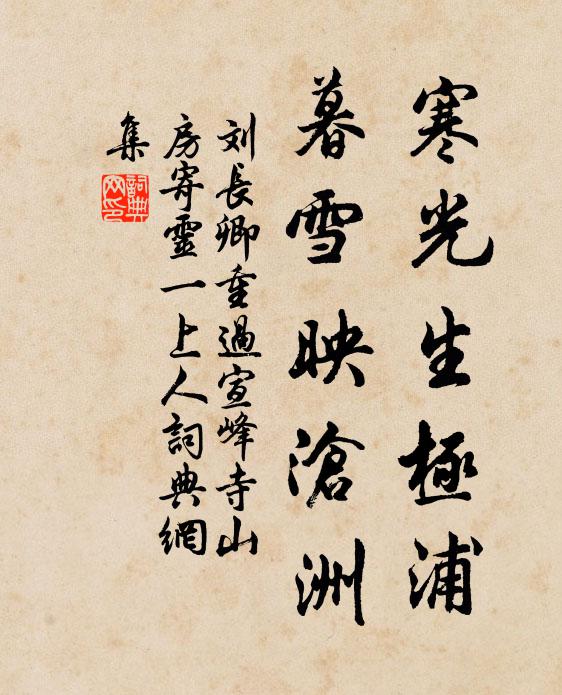 寒光生極浦
暮雪映滄洲
刘長卿重過宣峰寺山
房寄靈一上人詞典網
集
詞典
网印